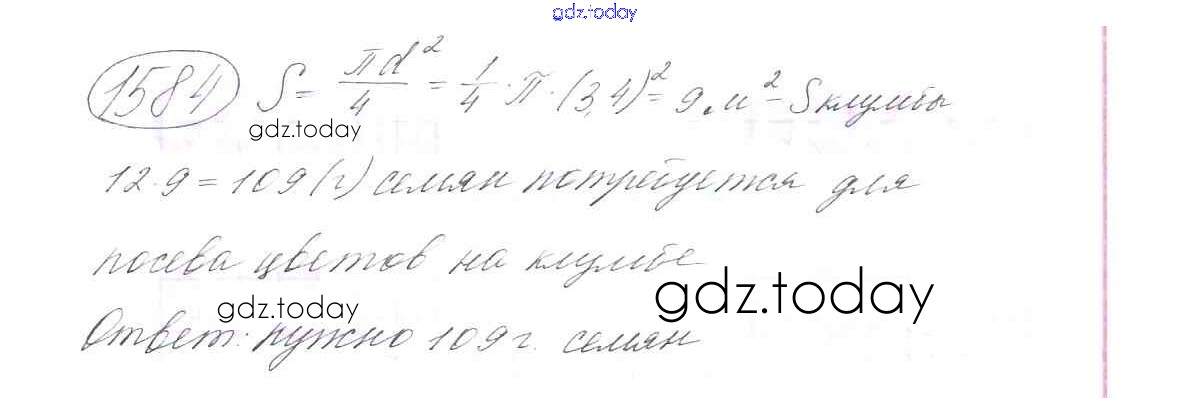 gdz.today
1584 S = πd²/4 = 1/4 · π · (3,4)² = 9 м² – S клумбы
gdz.today
12 · 9 = 109 (г) семян потребуется для
посева цветов на клумбе
gdz.today
gdz.today
Ответ: нужно 109 г. семян